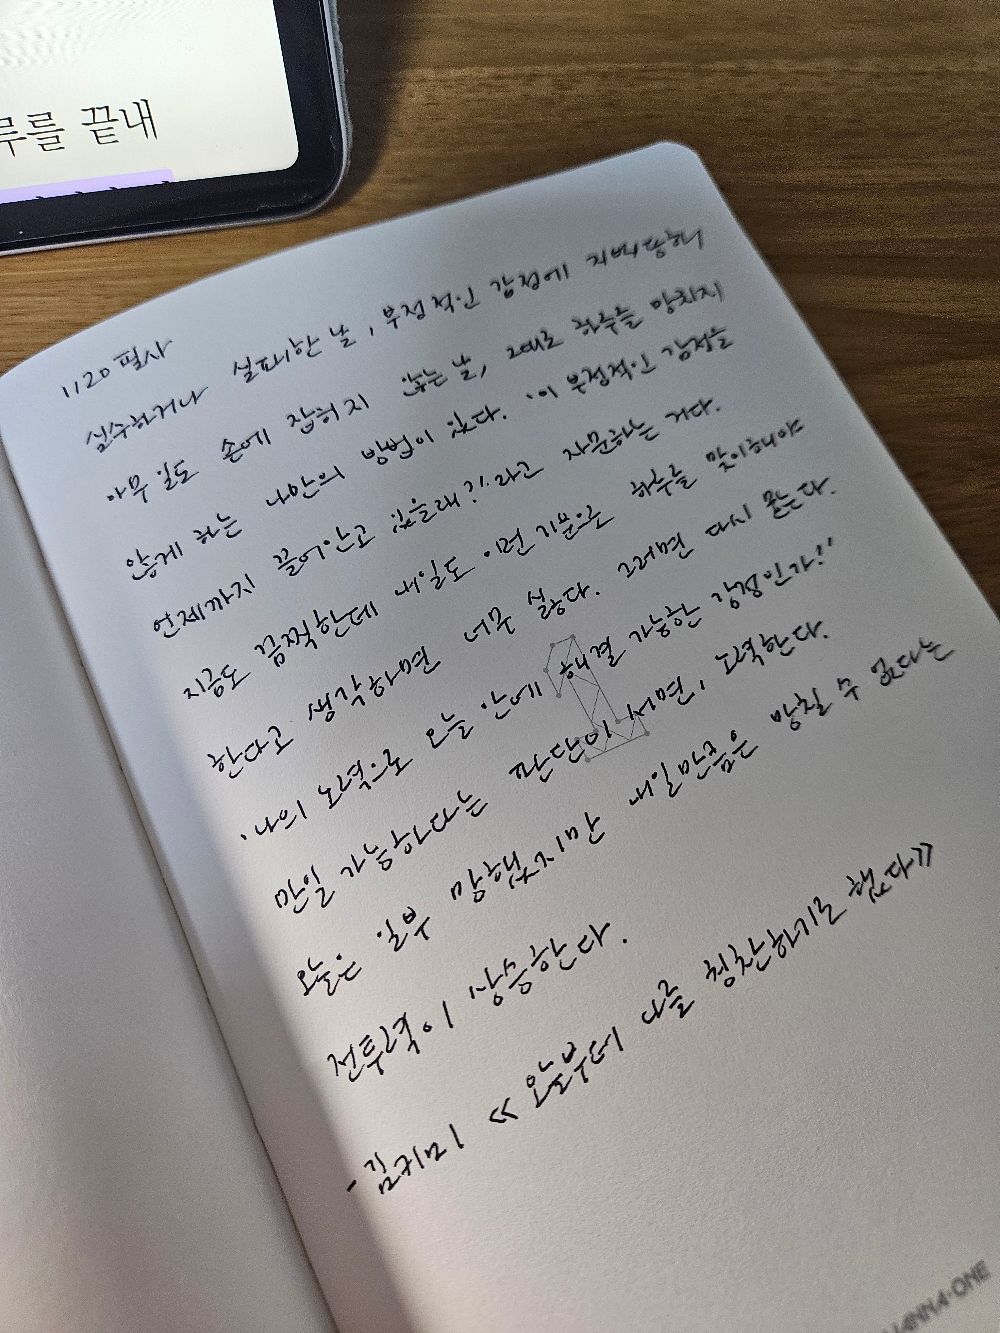 루를 끝내
1120 필사
실수하거나 실패한 날, 부정적인 감정에 지배당해
아무 일도 손에 잡히지 않는 날, 그대로 하루를 망치지
않게 하는 나만의 방법이 있다. '이 부정적인 감정을
언제까지 끌어안고 있을래?'라고 자문하는 거다.
지금도 끔찍한데 내일도 이런 기분으로 하루를 맞이해야
한다고 생각하면 너무 싫다. 그러면 다시 묻는다.
'나의 노력으로 오늘 안에 해결 가능한 감정인가?'
만일 가능하다는 판단이 서면, 노력한다.
오늘은 일부 망했지만 내일만큼은 망칠 수 없다는
전투력이 상승한다.
- 김키미 《오늘부터 나를 칭찬하기로 했다》
WANNA·ONE